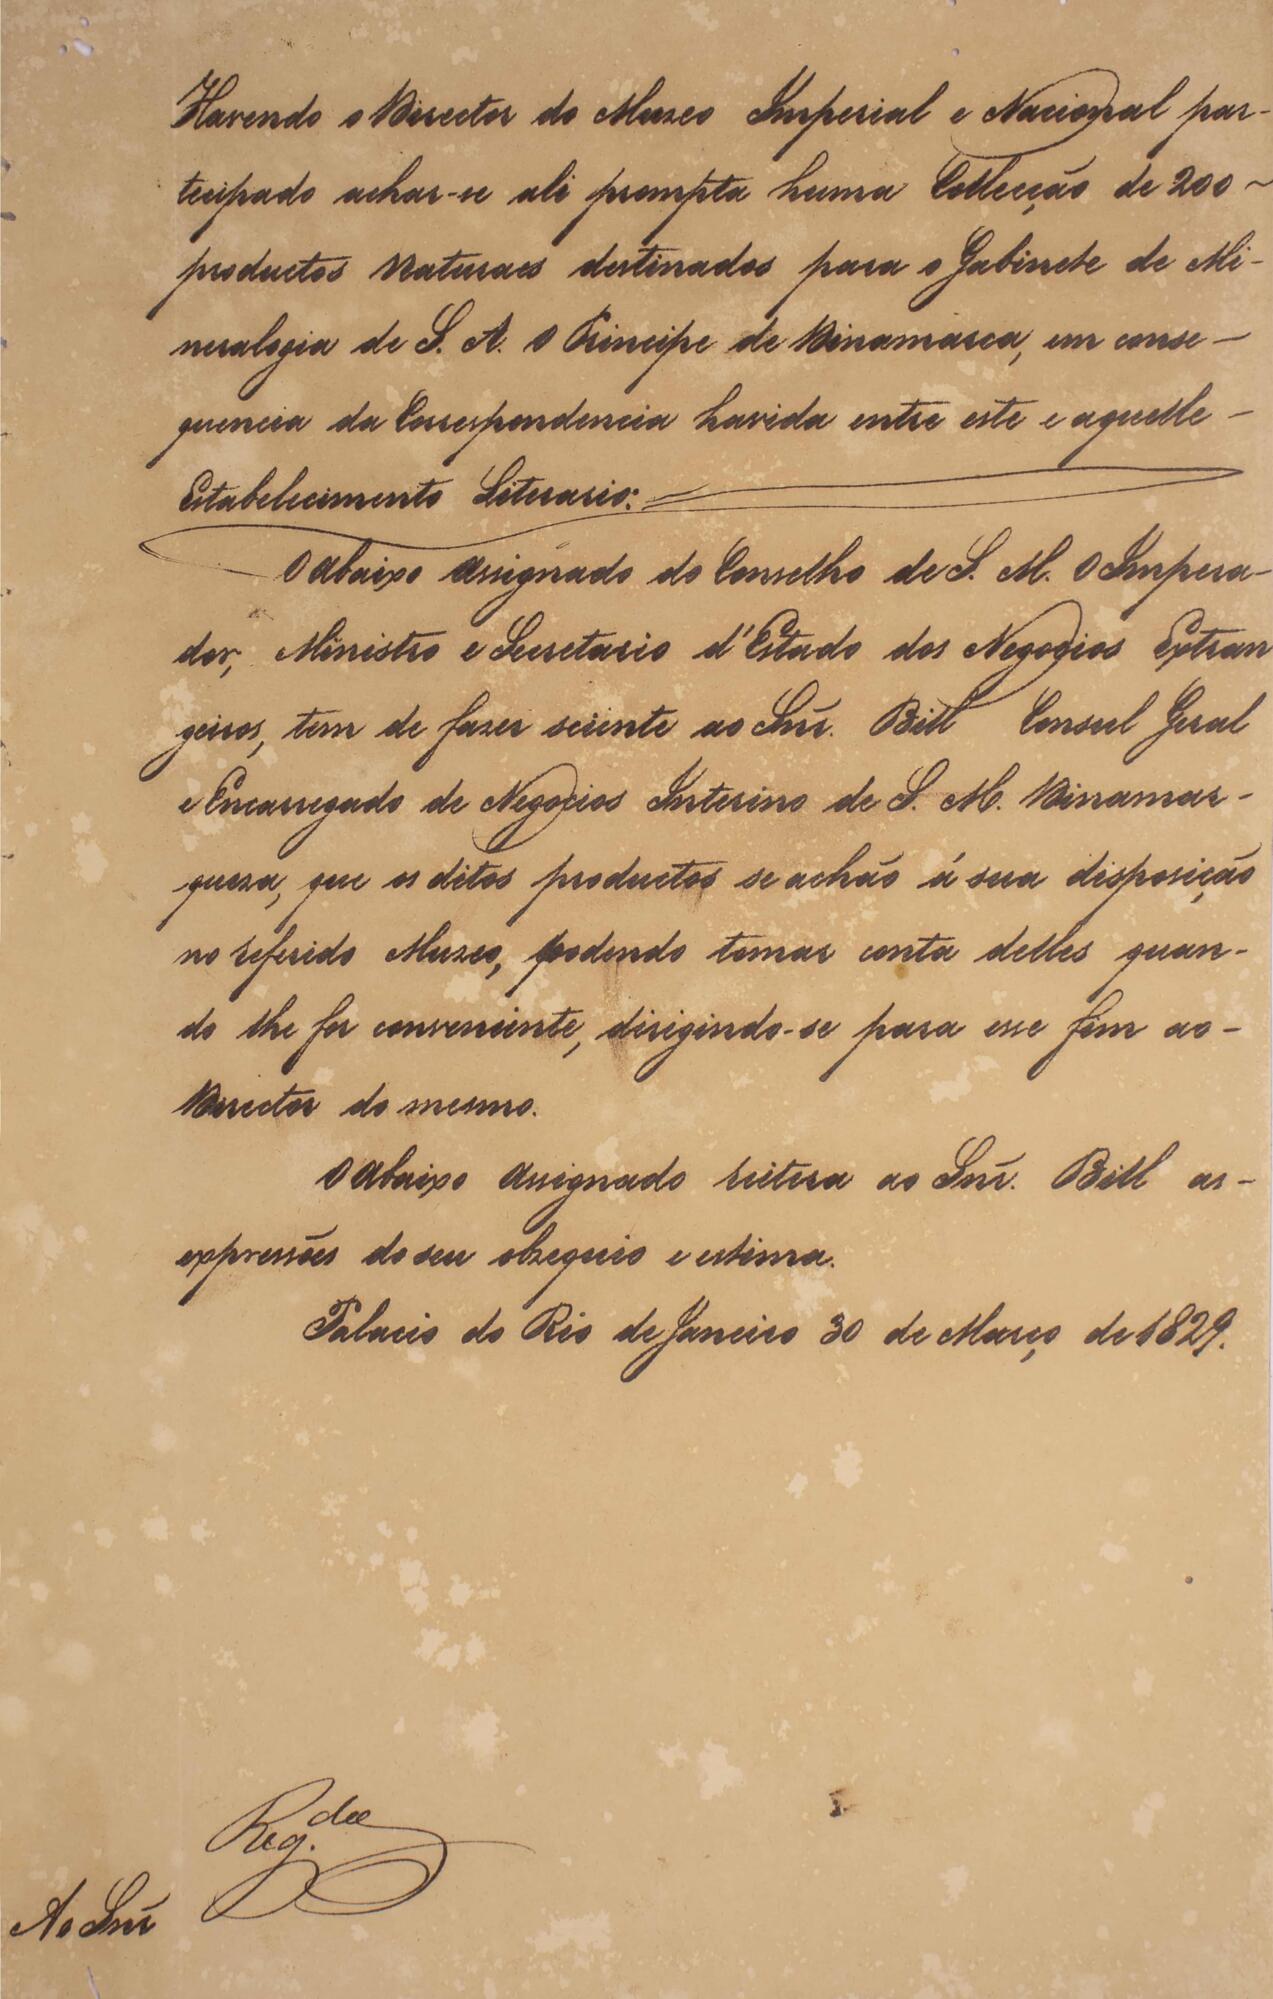 Havendo o Director do Muzeo Imperial e Nacional par-
tecipado achar-se ali prompta huma Collecção de 200 ~
productos Naturaes destinados para o Gabinete de Mi-
neralogia de S. A. O Principe de Dinamarca, em conse-
quencia da Correspondencia havida entre este e aquelle -
Estabelecimento Literario:
O Abaixo Assignado do Conselho de S. M. O Impera-
dor, Ministro e Secretario d'Estado dos Negocios Extran
geiros, tem de fazer sciente ao Snr. Bill Consul Geral
e Encarregado de Negocios Interino de S. M. Dinamar-
queza, que os ditos productos se achão á sua disposição
no referido Muzeo, podendo tomar conta delles quan-
do lhe for conveniente, dirigindo-se para esse fim ao -
Director do mesmo.
O Abaixo Assignado reitera ao Snr. Bill as -
expressões do seu obzequio e estima.
Palacio do Rio de Janeiro 30 de Março de 1829.
Reg.
Ao Snr